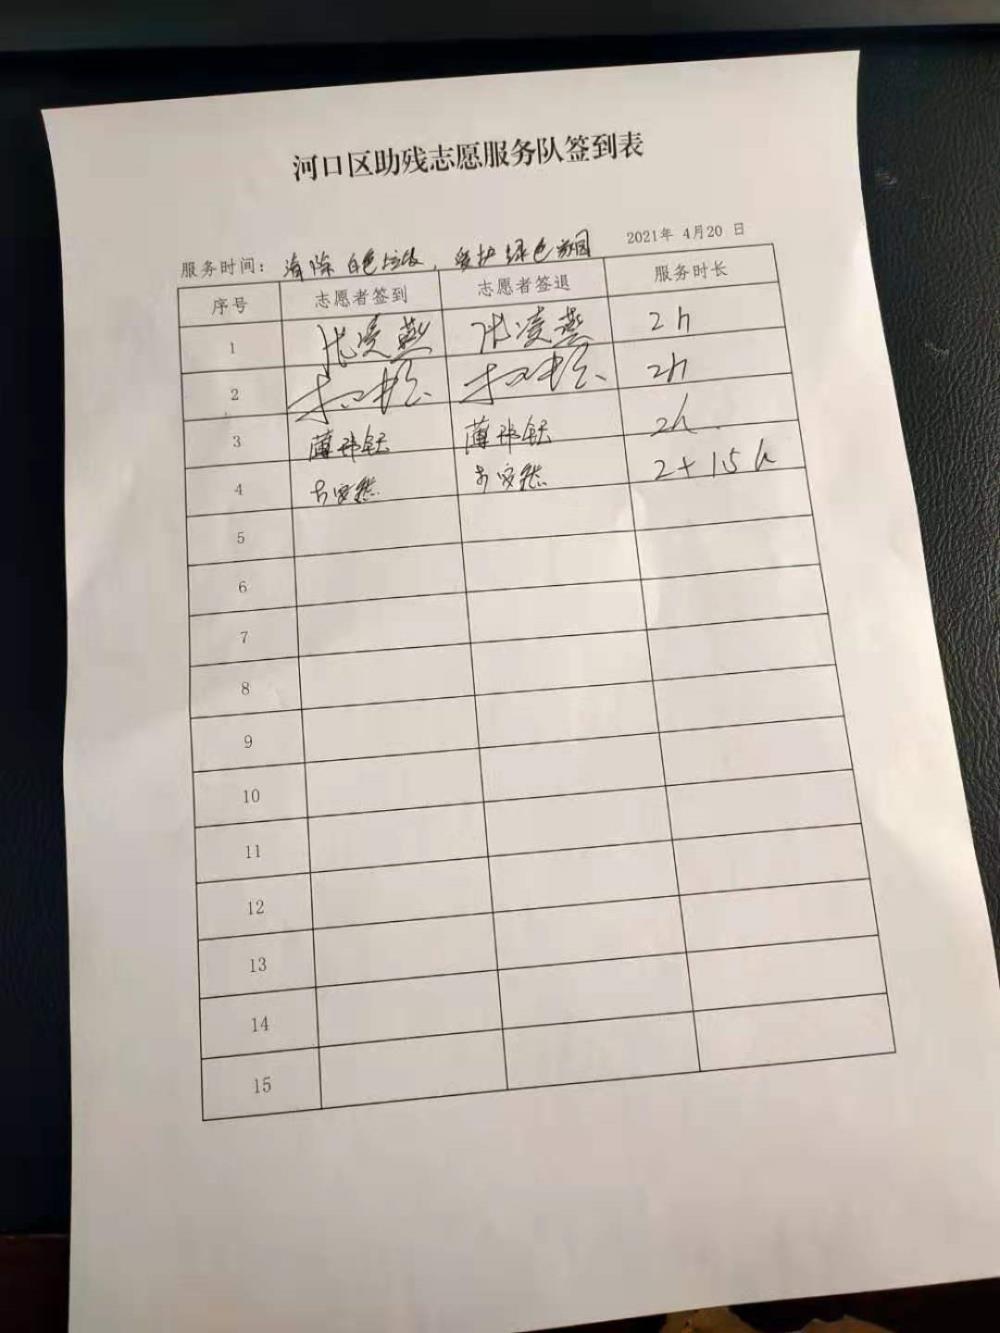 河口区助残志愿服务队签到表
服务时间：清除白色垃圾，爱护绿色家园 2021年 4月20 日
序号 志愿者签到 志愿者签退 服务时长
1 张凌燕 张凌燕 2h
2 2h
3 2h.
4 安然 安然 2+15h
5
6
7
8
9
10
11
12
13
14
15